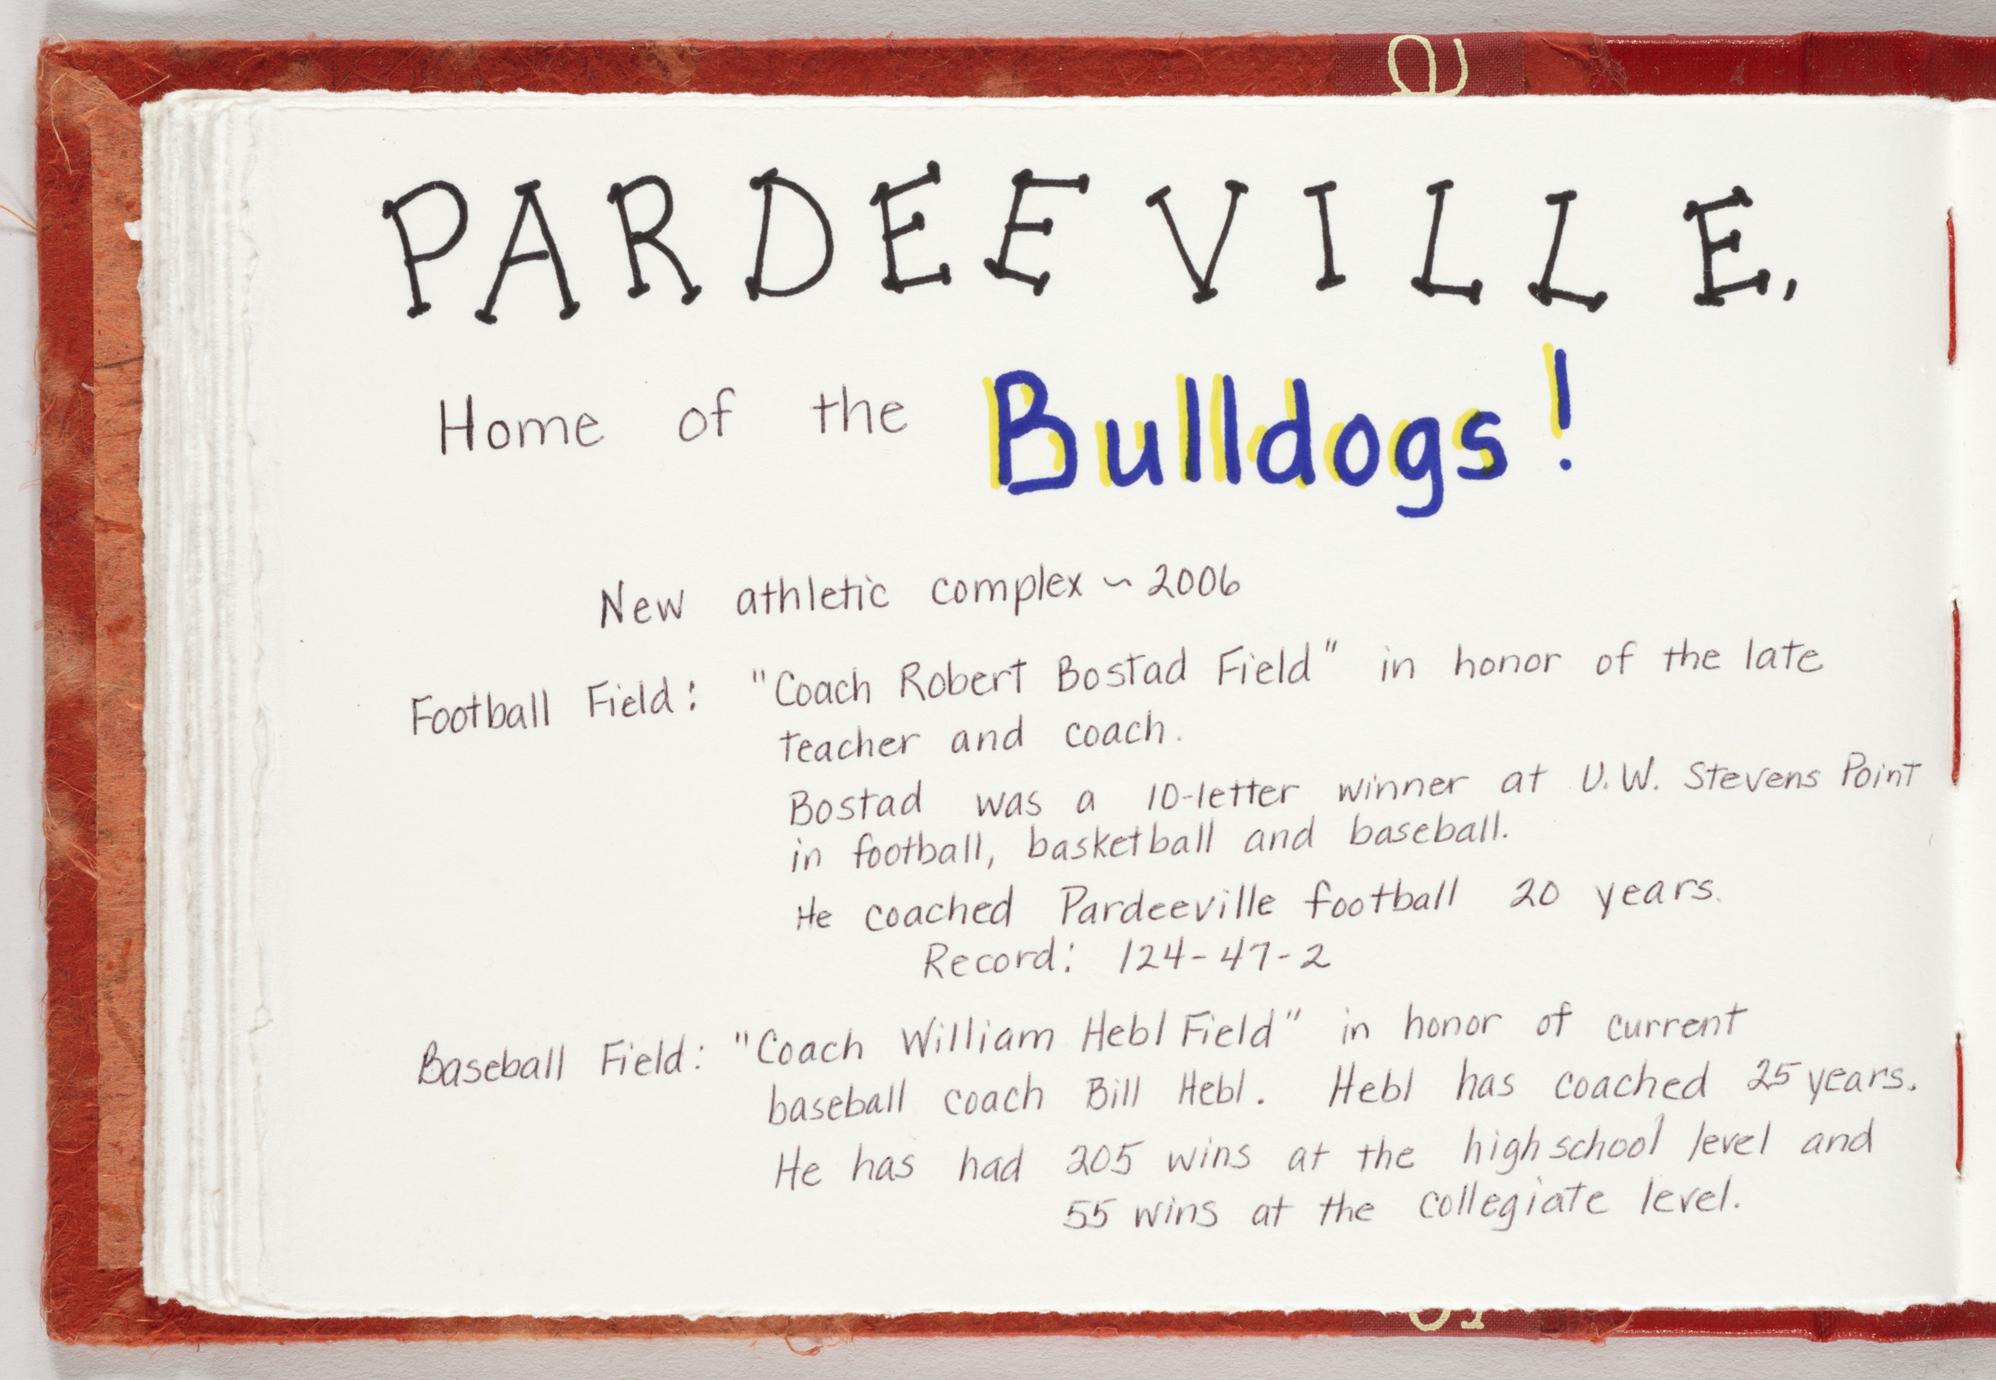 PARDEEVILLE,
Home of the Bulldogs!
New athletic complex ~ 2006
Football Field: "Coach Robert Bostad Field" in honor of the late
teacher and coach.
Bostad was a 10-letter winner at U.W. Stevens Point
in football, basketball and baseball.
He coached Pardeeville football 20 years.
Record: 124-47-2
Baseball Field: "Coach William Hebl Field" in honor of current
baseball coach Bill Hebl. Hebl has coached 25 years.
He has had 205 wins at the high school level and
55 wins at the collegiate level.